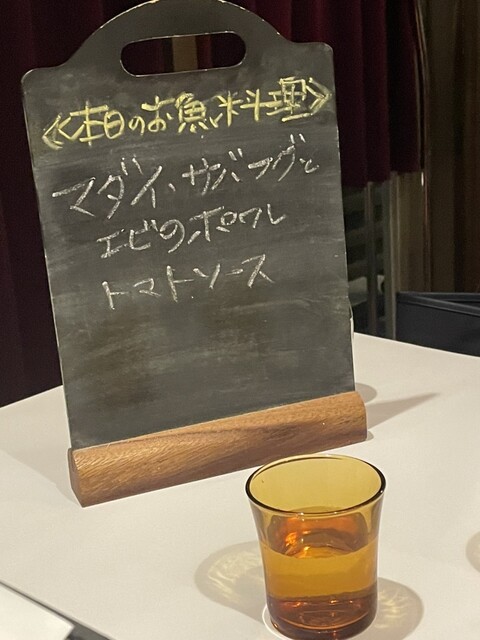 《本日のお魚料理》
マダイ、サバフグと
エビのポワレ
トマトソース